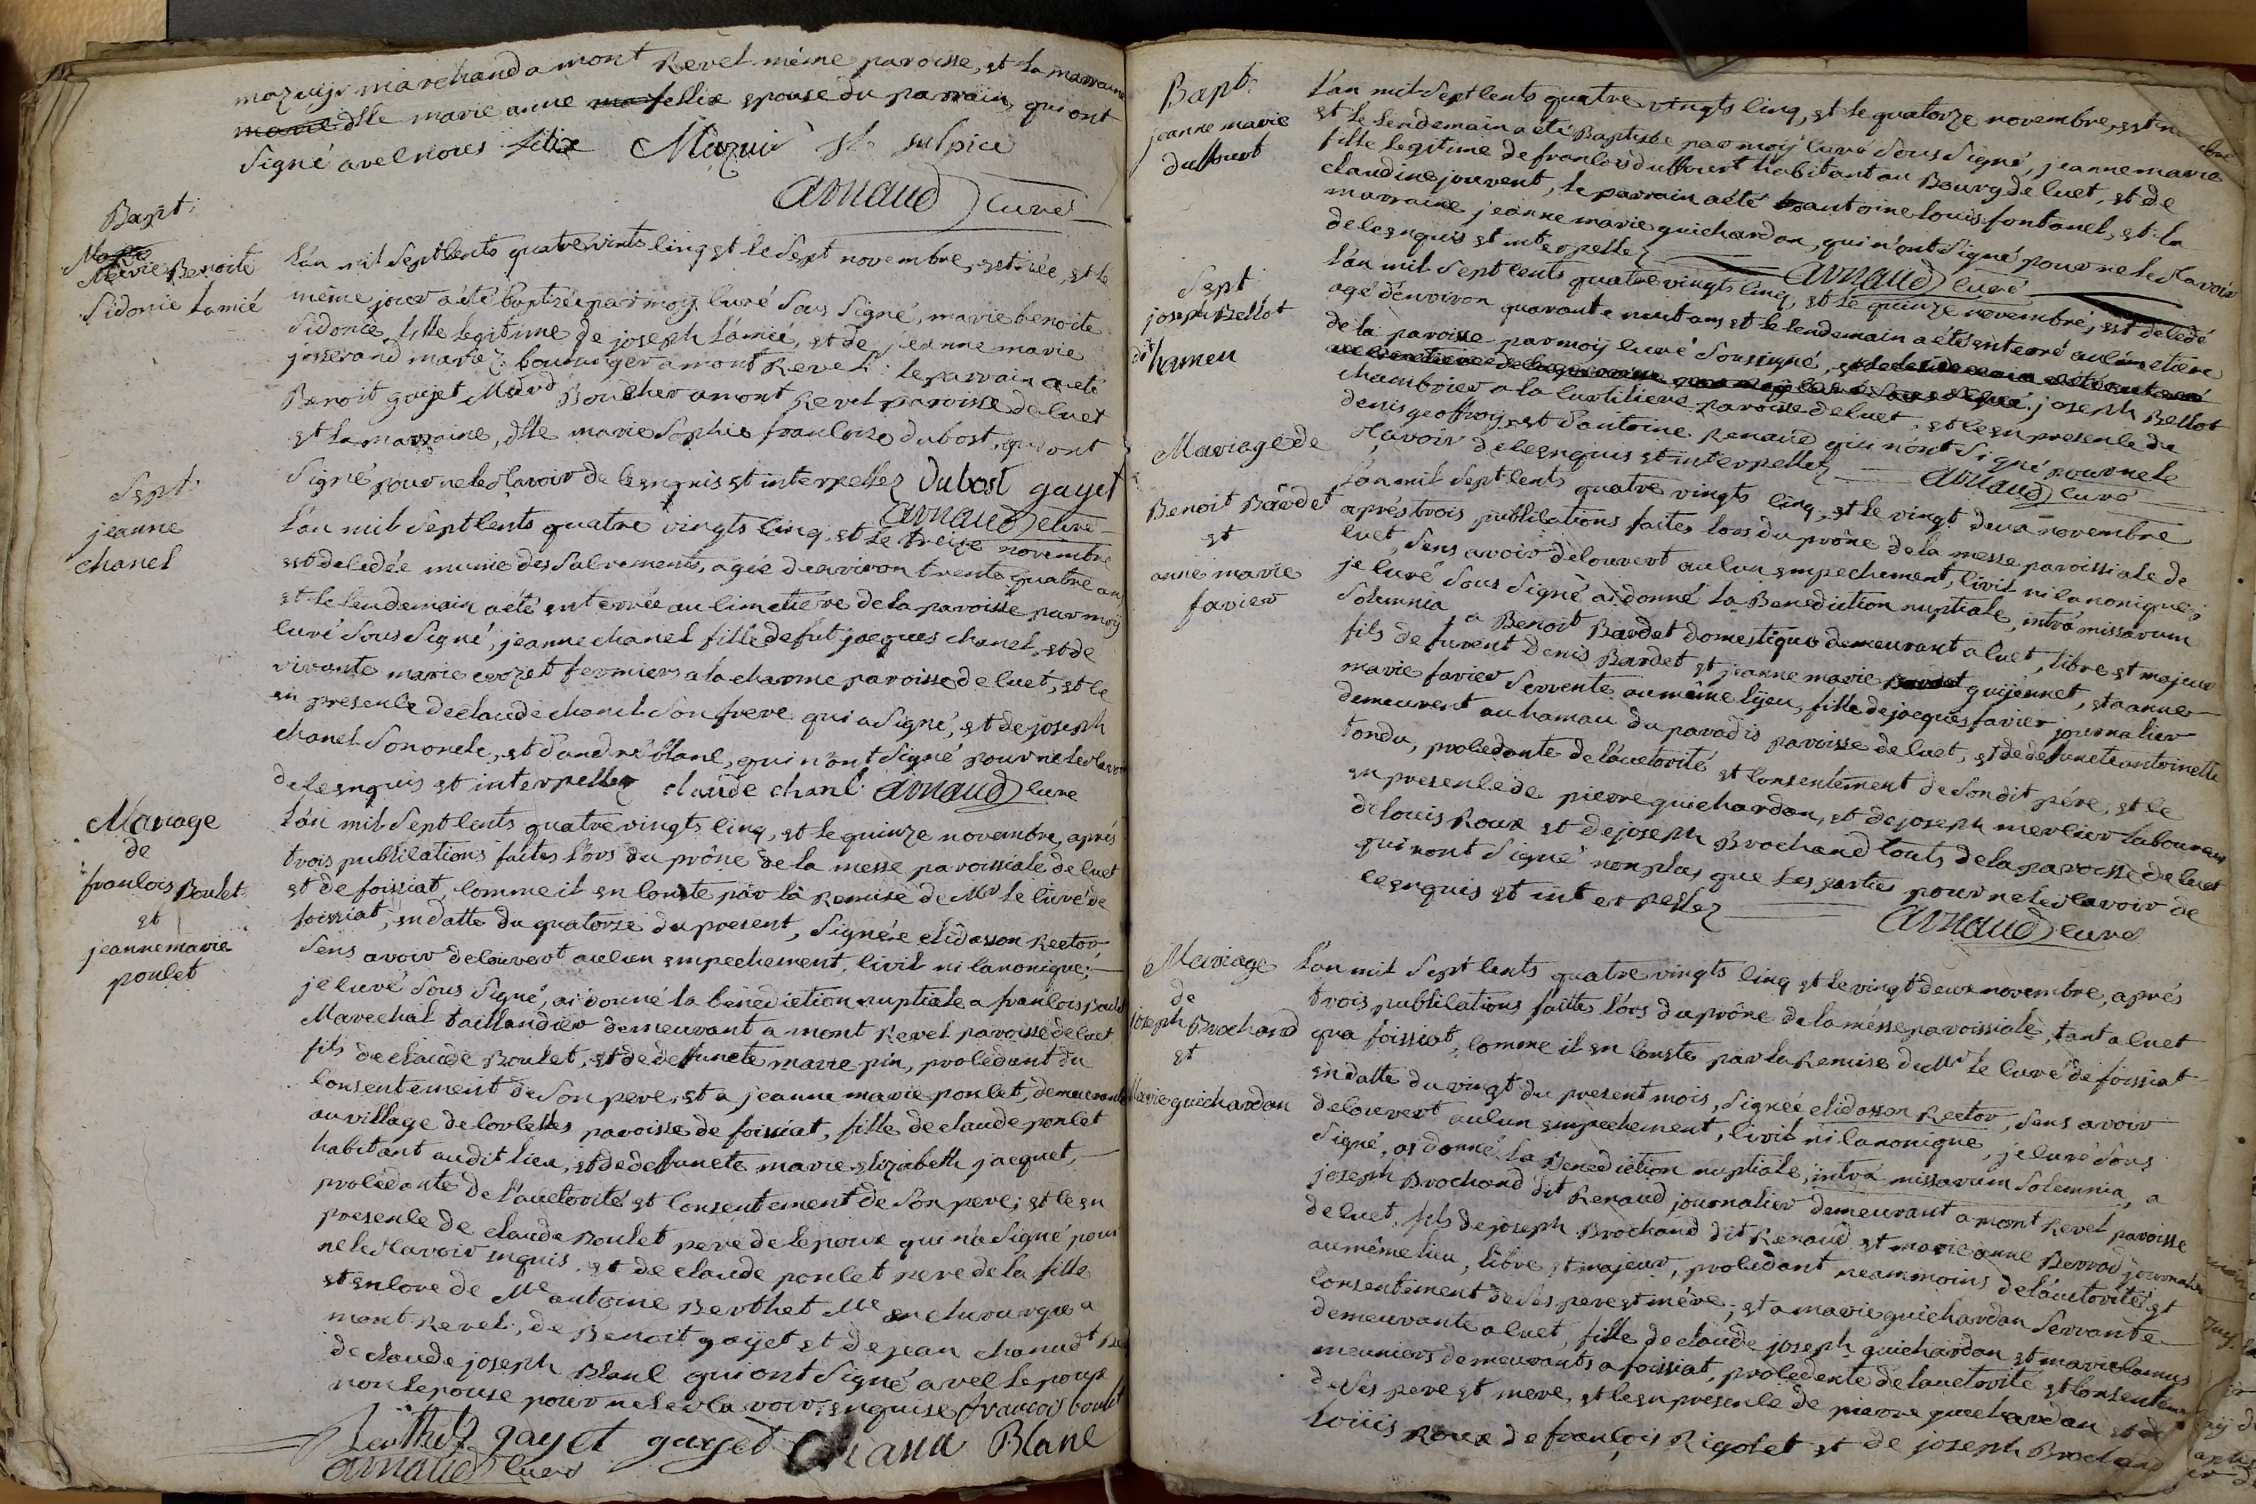 mazuyr marchand a mont Revel même paroisse, et la marraine
marie dlle marie anne fellix epouse du parrain, qui ont
Signé avec nous felix Mazuir st sulpice
Arnaud curé
Bapt:
Marie Benoite
Sidonie Lamié
L'an mil Sept cents quatre vints cinq et le Sept novembre, est née, et le
même jour a été baptisée par moy curé Sous Signé, marie benoite
Sidonie fille legitime de joseph Lamié, et de jeanne marie
josserand mariez boulanger a mont Revel: le parrain a eté
Benoit gayet Mard Boucher a mont Revel paroisse de cuet
et la marraine, dlle marie Sophie francoise dubost, qui ont
Signé pour ne le Scavoir de ce enquis et interpellez Dubost gayet
Arnaud curé
Sept:
jeanne
chanel
L'an mil Sept cents quatre vingts cinq, et le treize novembre
est decedée munie des Sacrements, agée d'environ trente quatre ans
et le lendemain a eté enterrée au cimetiére de la paroisse par moy
curé Sous Signé, jeanne chanel fille de fut jacques chanel, et de
vivante marie crozet fermiers a la charme paroisse de cuet, et ce
en presence de claude chanel Son frere qui a Signé, et de joseph
chanel Son oncle, et d'andré blanc, qui n'ont Signé pour ne le Scavoir
de ce enquis et interpellez claude chanl. Arnaud curé
Mariage
de
francois Boulet
et
jeanne marie
poulet
L'an mil Sept cents quatre vingts cinq, et le quinze novembre, aprés
trois publications faites Lors du prône de la messe paroissiale de cuet
et de foissiat, comme il en conste par la Remise de Mr le curé de
foissiat, en datte du quatorze du present, Signéé elidasson Rector
Sens avoir decouvert aucun empechement, civil ni canonique;
je curé Sous Signé, ai donné la bénédiction nuptiale a francois Boulet
Marechal taillandier demeurant a mont Revel paroisse de cuet
fils de claude Boulet, et de deffuncte marie pin, procédant du
consentement de Son pere, et a jeanne marie poulet, demeurante
au village de corcelles paroisse de foissiat, fille de claude poulet
habitant audit lieu, et de deffuncte marie elizabeth jacquet,
procédante de l'auctorité et consentement de Son pere; et ce en
presence de claude Boulet pere de l'epoux qui n'a Signé pour
ne le Scavoir enquis, et de claude poulet pere de la fille
et encore de Me antoine Berthet Me en chirurgie a
mont Revel, de Benoit gayet et de jean chanud
de claude joseph Blanc qui ont Signé avec l'epoux
non l'epouse pour ne le Scavoir, enquise francois boulet
Berthet gayet gayet Chanu Blanc
Arnaud curé
Bapt:
jeanne marie
duffourt
L'an mil Sept cents quatre vingts cinq, et le quatorze novembre, est née
et le lendemain a eté Baptisée par moy curé Sous Signé, jeanne marie
fille legitime de francois duffourt habitant au Bourg de cuet, et de
claudine jouvent, le parrain a eté antoine Louis fontanel, et la
marraine jeanne marie guichardon, qui n'ont Signé pour ne le Scavoir
de ce enquis et interpellez Arnaud curé
Sept
joseph Bellot
L'an mil Sept cents quatre vingts cinq, et le quinze novembre, est decedé
agé d'environ quarante huit ans et le lendemain a eté enterré au cimetiere
de la paroisse par moy curé Sous Signé, joseph Bellot
chambrier a la curtiliere paroisse de cuet, et ce en presence de
denis geoffroy, et d'antoine Renaud qui n'ont Signé pour ne le
Scavoir de ce enquis et interpellez Arnaud curé
Mariage de
Benoit Bardet
et
anne marie
favier
L'an mil Sept cents quatre vingts cinq, et le vingt deux novembre
aprés trois publications faites lors du prône de la messe paroissiale de
cuet, Sens avoir decouvert aucun empechement, civil ni canonique;
je curé Sous Signé ai donné la Benediction nuptiale, intrá missarum
Solemnia a Benoit Bardet domestique demeurant a cuet, libre et majeur
fils de furent Denis Bardet et jeanne marie guyennet, et a anne
marie favier Servente au même lieu, fille de jacques favier journalier
demeurent au hamau du paradis paroisse de cuet, et de deffuncte antoinette
tondu, procédante de l'auctorité et consentement de Son dit pére, et ce
en presence de pierre guichardon, et de joseph merlier laboureurs
de louis Roux et de joseph Brochand touts de la paroisse de cuet
qui n'ont Signé non plus que les parties pour ne le Scavoir de
ce enquis et interpellez Arnaud curé
Mariage
de
joseph Brochand
et
Marie guichardon
L'an mil Sept cents quatre vingts cinq et le vingt deux novembre, aprés
trois publications faites L'ors du prône de la messe paroissiale, tant a cuet
qu'a foissiat, comme il en conste par la Remise de Mr le curé de foissiat
en datte du vingt du present mois, Signéé elidasson Rector, Sens avoir
decouvert aucun empechement, civil ni canonique, je curé Sous
Signé, ai donné la Benediction nuptiale, intrá missarum Solemnia, a
joseph Brochand dit Renaud journalier demeurant a mont Revel paroisse
de cuet, fils de joseph Brochand dit Renaud et marie anne Berrod journaliers
au même lieu, libre et majeur, procédant neammoins de l'auctorité et
consentement de Ses pere et mére; et a marie guichardon Servante
demeurante a cuet, fille de claude joseph guichardon et marie camus
meuniers demeurants a foissiat, procédente de l'auctorité et consentement
de Ses pere et mere, et ce en presence de pierre guichardon et de
Loüis Roux de francois Rigolet et de joseph Brochand